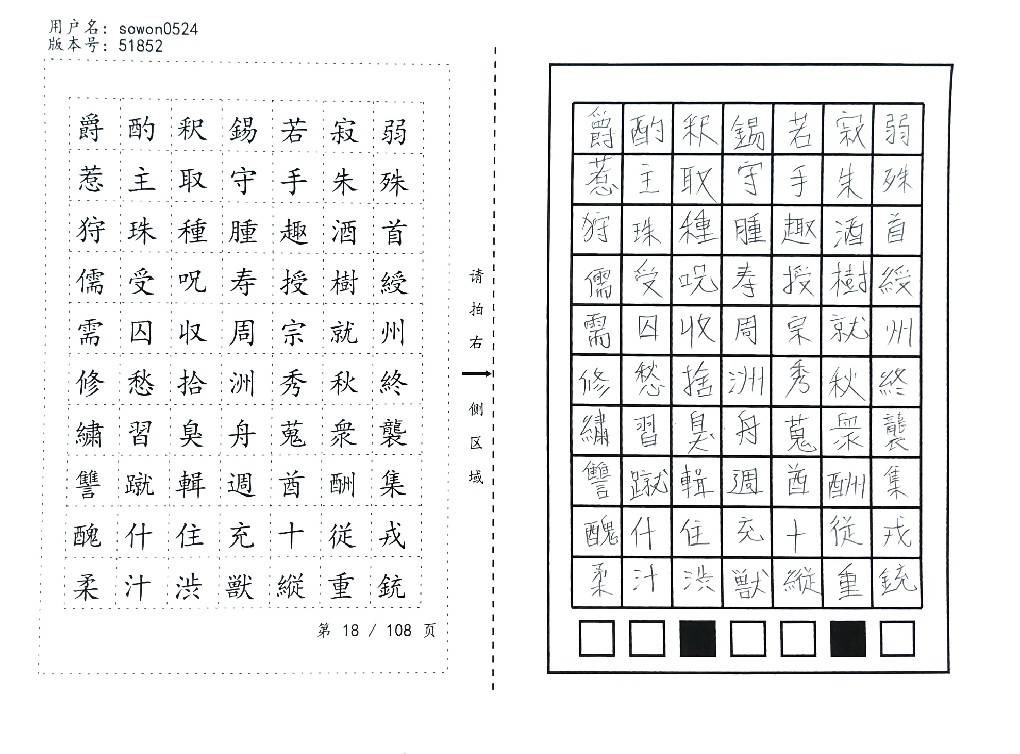 用户名: sowon0524
版本号: 51852
爵 酌 釈 錫 若 寂 弱
惹 主 取 守 手 朱 殊
狩 珠 種 腫 趣 酒 首
儒 受 呪 寿 授 樹 綬
需 囚 収 周 宗 就 州
修 愁 拾 洲 秀 秋 終
繍 習 臭 舟 蒐 衆 襲
讐 蹴 輯 週 酋 酬 集
醜 什 住 充 十 従 戎
柔 汁 渋 獣 縦 重 銃
第 18 / 108 页
请拍右
侧区域
爵 酌 釈 錫 若 寂 弱
惹 主 取 守 手 朱 殊
狩 珠 種 腫 趣 酒 首
儒 受 呪 寿 授 樹 綬
需 囚 収 周 宗 就 州
修 愁 捨 洲 秀 秋 終
繍 習 臭 舟 蒐 衆 襲
讐 蹴 輯 週 酋 酬 集
醜 什 住 充 十 従 戎
柔 汁 渋 獣 縦 重 銃